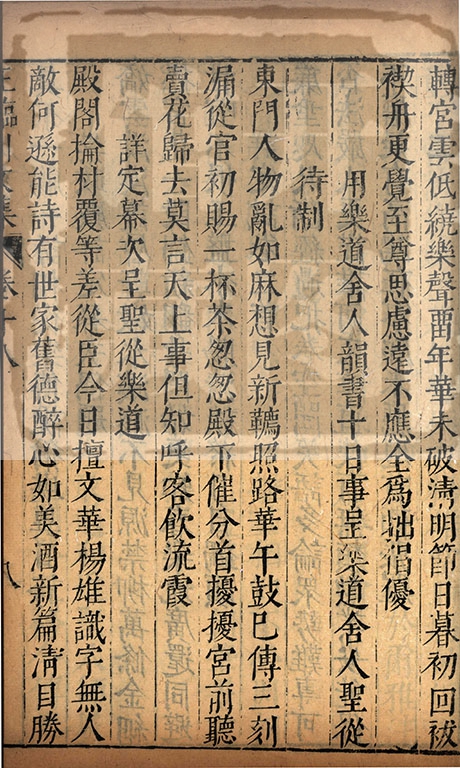 轉宮雲低繞樂聲酉年華未破清明節日暮初回祓
禊舟更覺至尊思慮遠不應全爲拙倡優
用樂道舍人韻書十日事呈樂道舍人聖從
待制
東門人物亂如麻想見新鞴照路華午鼓已傳三刻
漏從官初賜一杯茶忽忽殿下催分首擾擾宮前聽
賣花歸去莫言天上事但知呼客飲流霞
詳定幕次呈聖從樂道
殿閣掄材覆等差從臣今日擅文華楊雄識字無人
敵何遜能詩有世家舊德醉心如美酒新篇清目勝